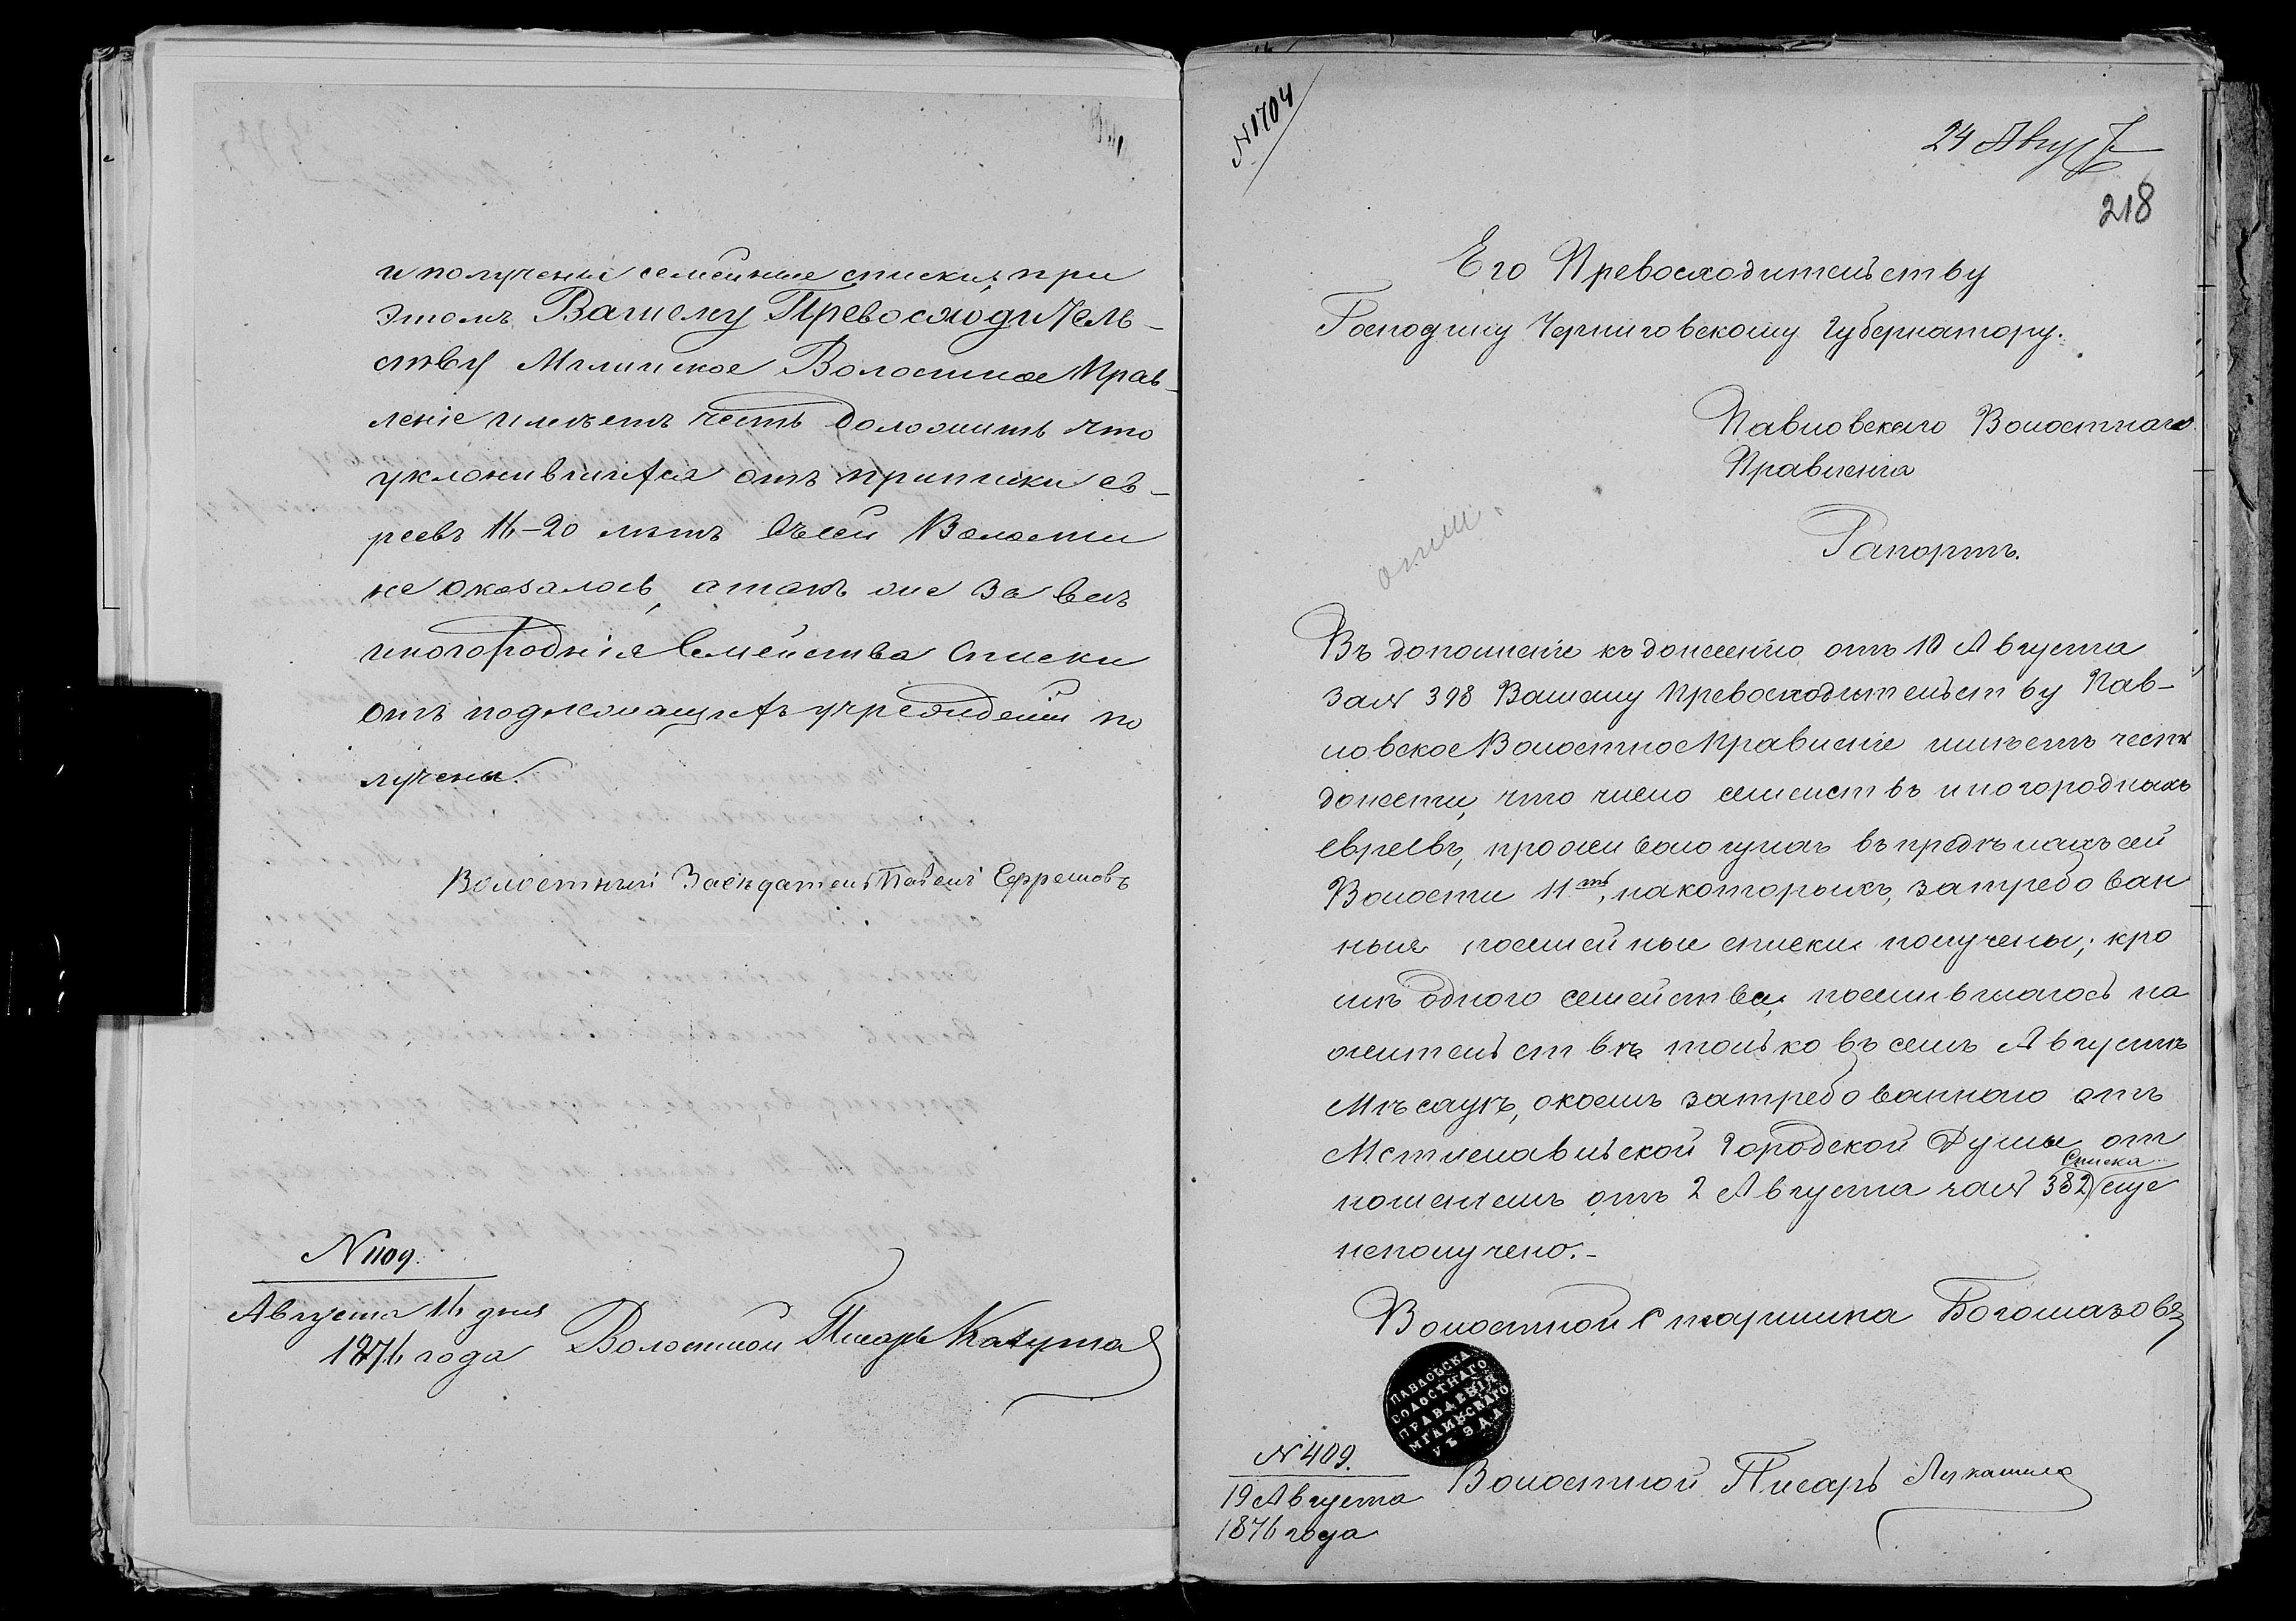 и получены семейные списки, при
этомъ Вашему Превосходитель-
ству Мглинское Волостное Прав-
леніе имѣетъ честь доложить что
уклонившихся отъ приписки ев-
реевъ 16-20 лѣтъ въ сей Волости
не оказалось, а такъ же за всѣ
иногородніе Семейства Списки
отъ подлежащихъ учрежденій по
лучены.
Волостный Засѣдатель Павелъ Ефремовъ
N 1109.
Августа 16 дня
1876 года
Волостной Писарь
N 1704
24 Август
218
Его Превосходительству
Господину Черниговскому Губернатору.
Павловскаго Волостнаго
Правленія
Рапортъ.
Въ дополненіе къ донесенію отъ 10 Августа
за N 398 Вашему Превосходительству Пав-
ловское Волостное Правленіе имѣетъ честь
донести, что число семействъ иногородныхъ
евреевъ, проживающихъ въ предѣлахъ сей
Волости 11ть, на которыхъ, затребован
ныя посемейные списки получены; кро
мѣ одного семейства, поселившагося на
жительствѣ только въ семъ Августѣ
Мѣсяцѣ, о коемъ затребованнаго отъ
Мстиславльской Городской Думы от
Списка
ношеніемъ отъ 2 Августа за N 382 еще
неполучено.-
Волостной Старшина Богомазовъ
ПАВЛОВСКА
ВОЛОСТНАГО
ПРАВЛЕНІЯ
МГЛИНСКАГО
УѢЗДА
N 409.
19 Августа
1876 года
Волостной Писарь Лукашев